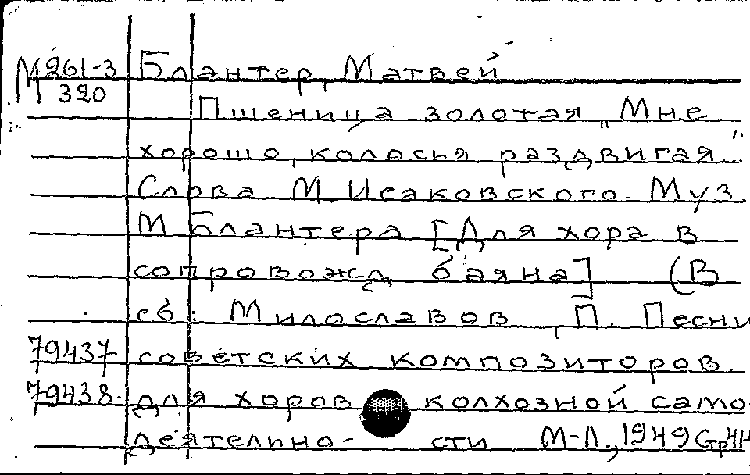 М 261-3 Блантер, Матвей
320
Пшеница золотая „Мне
хорошо, колосья раздвигая".
Слова М. Исаковского. Муз.
М Блантера [Для хора в
сопровожд баяна] (В
сб: Милославов, П. Песни
79437 советских композиторов.
79438. для хоров колхозной само-
деятельно- сти М-Л., 1949 Стр